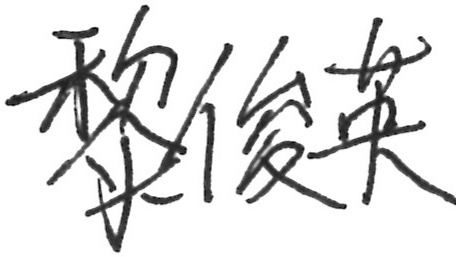 黎俊英